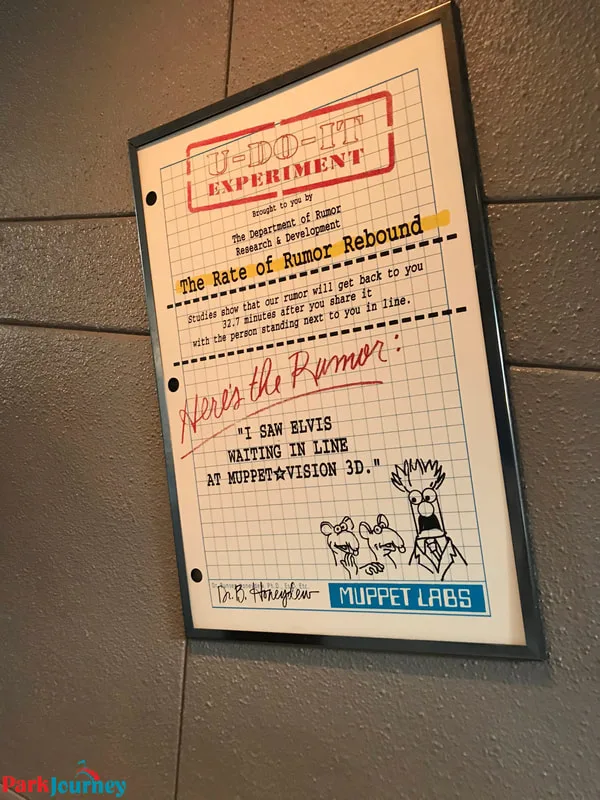 U-DO-IT
EXPERIMENT
Brought to you by
The Department of Rumor
Research & Development
The Rate of Rumor Rebound
Studies show that our rumor will get back to you
32.7 minutes after you share it
with the person standing next to you in line.
Here's the Rumor:
"I SAW ELVIS
WAITING IN LINE
AT MUPPET☆VISION 3D."
Dr. B. Honeydew
MUPPET LABS
ParkJourney